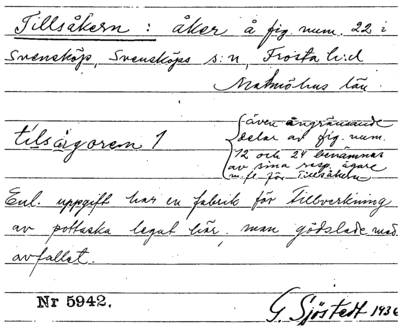 Tillsåkern : åker å fig. num. 22 i
Svensköp, Svensköps s:n, Frosta h:d
Malmöhus län.
tilsågorem 1
(även angränsande
delar av fig. num.
12 och 24 benämnas
av sina resp. ägare
m. fl. för Tillsåkern
Enl. uppgift har en fabrik för tillverkning
av pottaska legat här, man gödslade med
avfallet.
Nr 5942.
G. Sjöstedt 1936